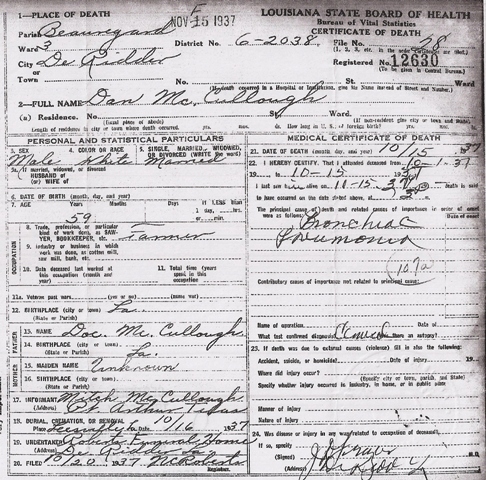 F
NOV 15 1937
LOUISIANA STATE BOARD OF HEALTH
Bureau of Vital Statistics
CERTIFICATE OF DEATH
1—PLACE OF DEATH
Parish Beauregard
Ward 3
District No. 6-2038
File No. 78
City De Ridder
Registered No. 12630
Town
No. St. Ward
2—FULL NAME Dan Mc. Cullough
(a) Residence. No. St. Ward.
(Usual place of abode)
Length of residence in city or town where death occurred. yrs. mos. ds. How long in U. S. if of foreign birth? yrs. mos. ds.
PERSONAL AND STATISTICAL PARTICULARS
5. SEX
4. COLOR OR RACE
5. SINGLE, MARRIED, WIDOWED, OR DIVORCED (write the word)
Male White Married
5a. If married, widowed, or divorced
HUSBAND of
(or) WIFE of
6. DATE OF BIRTH (month, day, and year)
7. AGE Years Months Days If LESS than 1 day,
59
8. Trade, profession, or particular kind of work done, as SAWYER, BOOKKEEPER, etc. Farmer
9. Industry or business in which work was done, as cotton mill, saw mill, bank, etc.
10. Date deceased last worked at this occupation (month and year)
11. Total time (years) spent in this occupation
OCCUPATION
11a. Veteran past wars. (yes or no) (name war)
12. BIRTHPLACE (city or town) La.
(State or Parish)
FATHER
13. NAME Doc. Mc. Cullough
14. BIRTHPLACE (city or town) La.
(State or Parish)
MOTHER
15. MAIDEN NAME Unknown
16. BIRTHPLACE (city or town)
(State or Parish)
17. INFORMANT Mc. Cullough
(Address) Pt. Arthur Texas
18. BURIAL, CREMATION, OR REMOVAL
Place Date 10/16 1937
19. UNDERTAKER Roberts Funeral Home
(Address) De Ridder La
20. FILED 10/20 1937 Roberts
Registrar.
MEDICAL CERTIFICATE OF DEATH
21. DATE OF DEATH (month, day, and year) 10/15 37
22. I HEREBY CERTIFY, That I attended deceased from 10-1-37
19 to 10-15 19
I last saw alive on death is said
to have occurred on the date stated above, at
The principal cause of death and related causes of importance in order of onset were as follows:
Bronchial
Pneumonia
107a
Contributory causes of importance not related to principal cause:
Name of operation Date of
What test confirmed diagnosis? Clinical Was there an autopsy?
23. If death was due to external causes (violence) fill in also the following:
Accident, suicide, or homicide? Date of injury 19
Where did injury occur?
(Specify city or town, parish, and State)
Specify whether injury occurred in industry, in home, or in public place
Manner of injury
Nature of injury
24. Was disease or injury in any way related to occupation of deceased?
If so, specify
(Signed) M.D.
(Address) De Ridder La